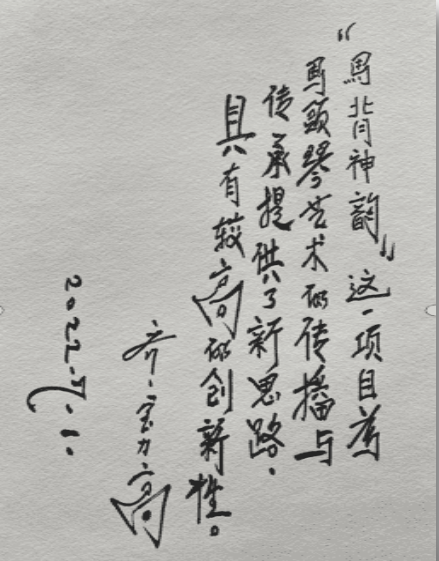 “馬背神韵”这一项目為
馬頭琴艺术的传播与
传承提供了新思路。
具有较高的创新性。
齐·宝力高
2022.7.1.